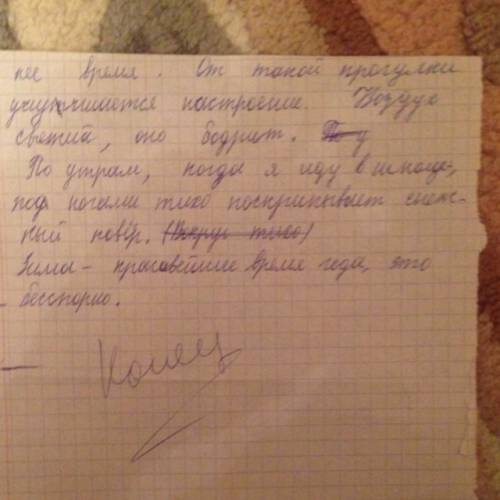 нее время. От такой прогулки
улучшается настроение. Воздух
свежий, оно бодрит.
По утрам, когда я иду в школе,
под ногами тихо поскрипывает снеж-
ный ковёр. (Вокруг тихо)
Зима - красивейшее время года, это
бесспорно.
Конец